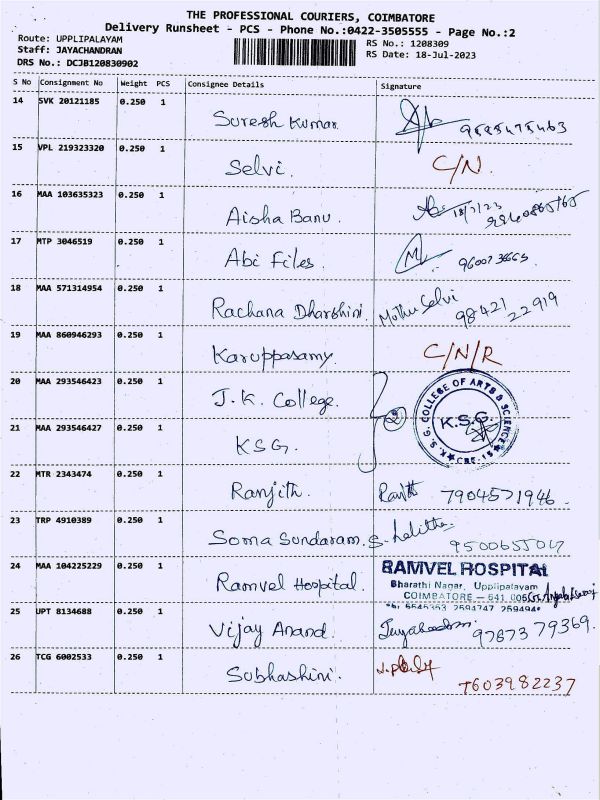 THE PROFESSIONAL COURIERS, COIMBATORE
Delivery Runsheet - PCS - Phone No.:0422-3505555 - Page No.:2
Route: UPPLIPALAYAM
RS No.: 1208309
Staff: JAYACHANDRAN
RS Date: 18-Jul-2023
DRS No.: DCJB120830902
S No Consignment No Weight PCS Consignee Details Signature
14 SVK 20121185 0.250 1 Suresh Kumar
15 VPL 219323320 0.250 1 Selvi. C/N.
16 MAA 103635323 0.250 1 Aisha Banu. 18/7/23
17 MTP 3046519 0.250 1 Abi Files.
18 MAA 571314954 0.250 1 Rachana Dharshini. Muthu Selvi 98421 22919
19 MAA 860946293 0.250 1 Karuppasamy. C/N/R
20 MAA 293546423 0.250 1 J.K. College.
K.S.G. COLLEGE OF ARTS & SCIENCE
21 MAA 293546427 0.250 1 KSG. 2 K.S.G. CBE-15
22 MTR 2343474 0.250 1 Ranjith. 7904571946
23 TRP 4910389 0.250 1 Soma Sundaram. S. Lalitha
24 MAA 104225229 0.250 1 Ramvel Hospital. RAMVEL HOSPITAL
Bharathi Nagar, Upplipalayam
COIMBATORE - 641 005
25 UPT 8134688 0.250 1 Vijay Anand. 9787379369.
26 TCG 6002533 0.250 1 Subhashini. 7603982237